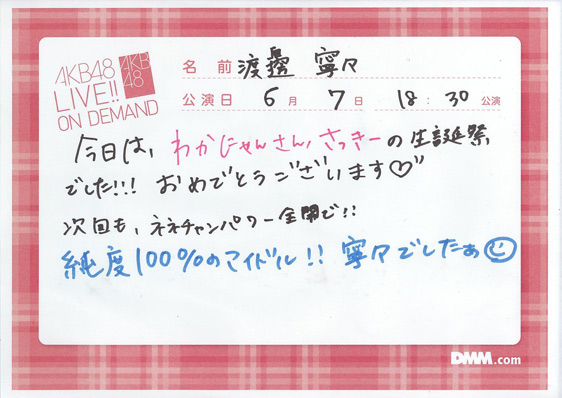 AKB48
LIVE!!
ON DEMAND
AKB
48
名 前 渡邊 寧々
公演日 6月 7日 18:30 公演
今日は、わかにゃんさん,さっきーの生誕祭
でした!!! おめでとうございます♡
次回も、ネネチャンパワー全開で!!
純度100%のアイドル!! 寧々でしたぁ☺
DMM.com